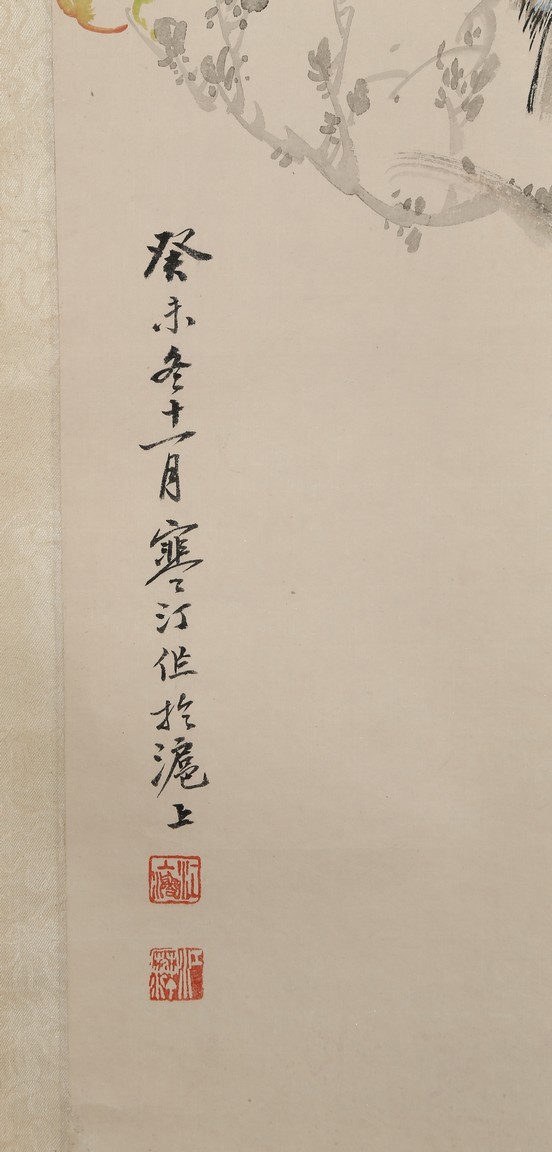 癸未冬十一月寒汀作於滬上